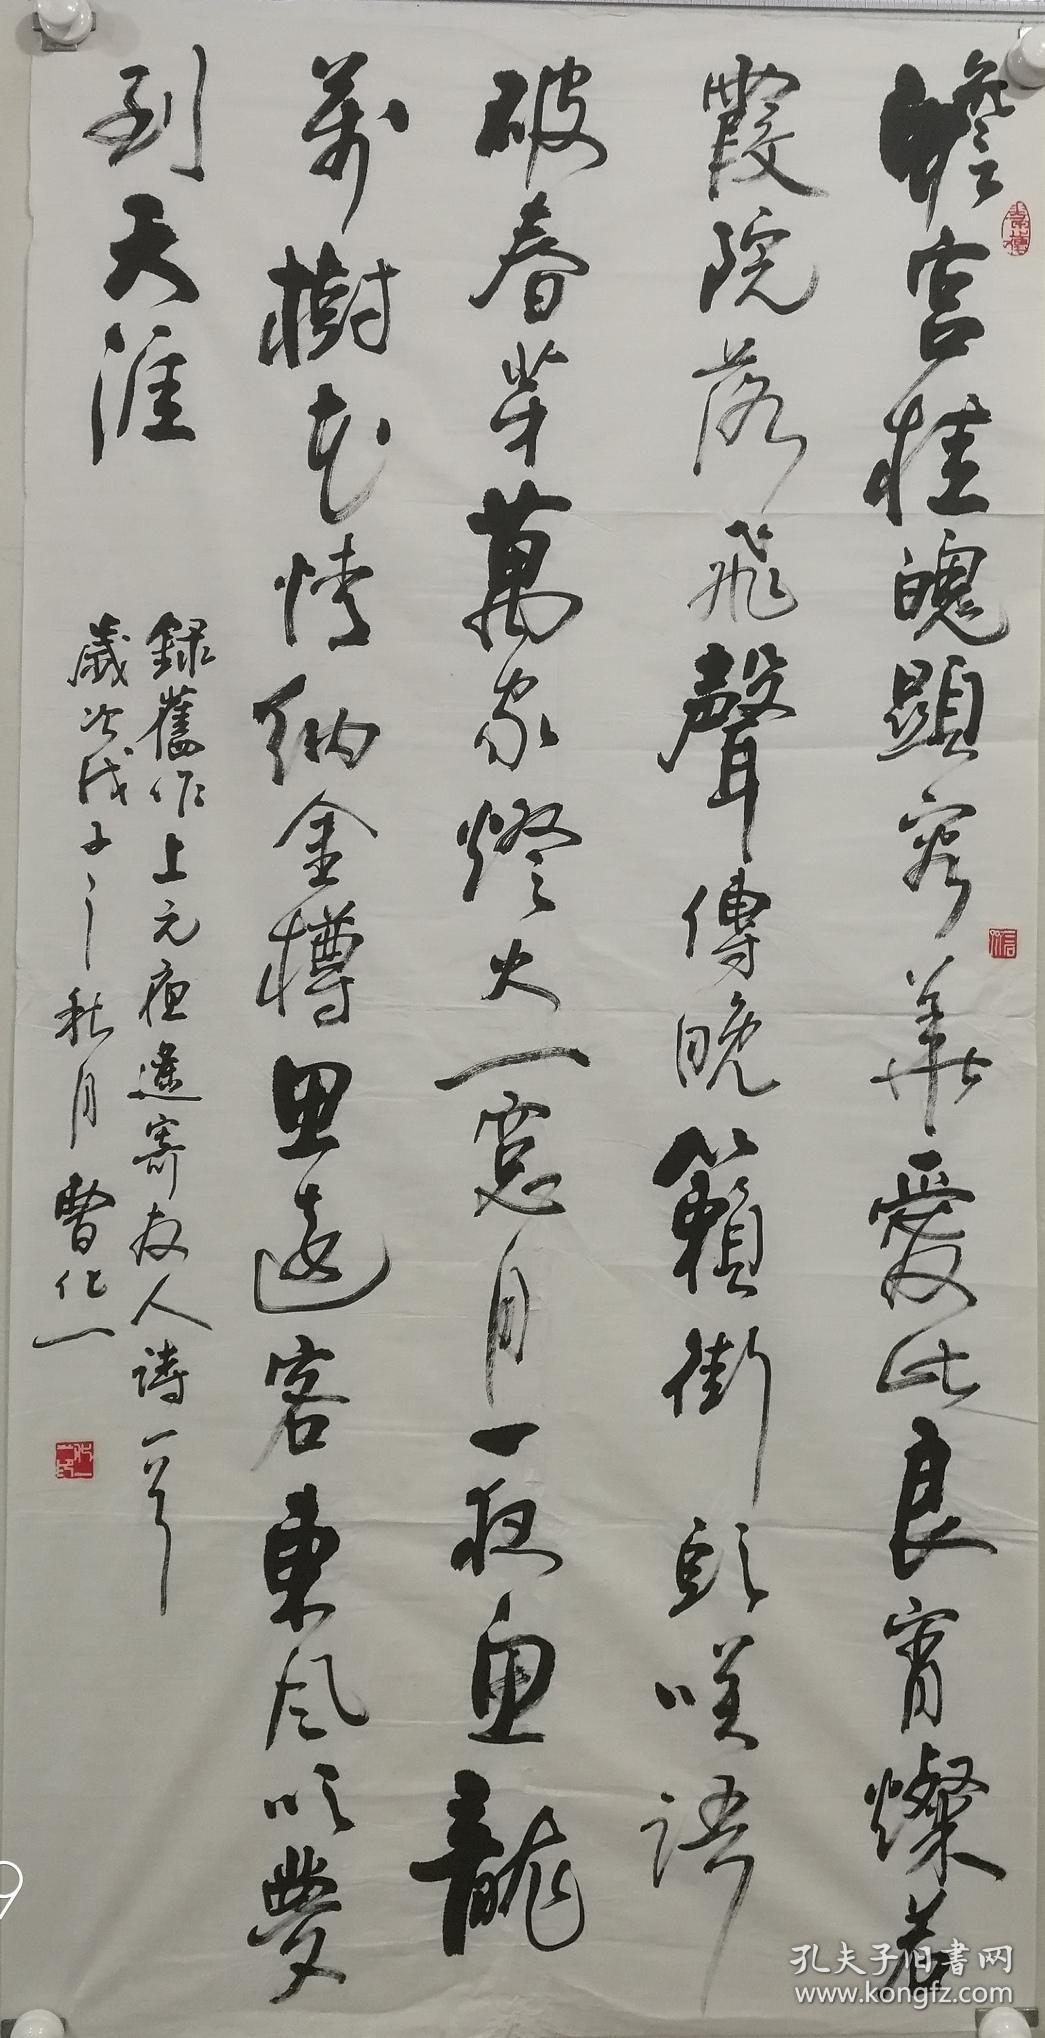 蟾宮桂魄顯容華愛此良宵燦若
霞院落飛聲傳晚籟街頭咲語
破春芽萬家燈火一窓月一夜魚龍
萬樹花情納金樽思遠客東風吹夢
到天涯
錄舊作上元夜遙寄友人詩一首
歲次戊子之秋月曹化一
孔夫子旧书网
www.kongfz.com